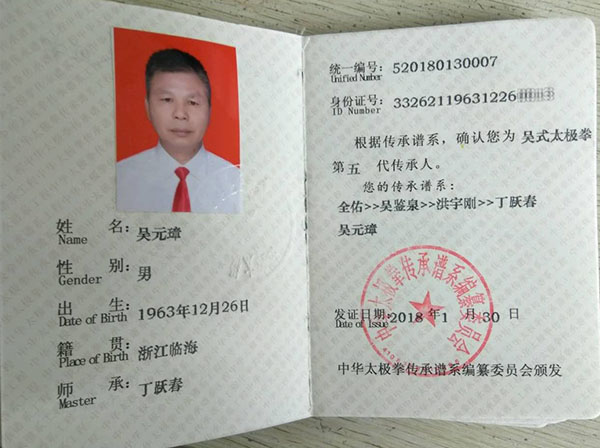 姓 名：吴元璋
Name
性 别：男
Gender
出 生：1963年12月26日
Date of Birth
籍 贯：浙江临海
Place of Birth
师 承：丁跃春
Master
统一编号：520180130007
Unified Number
身份证号：33262119631226
ID Number
根据传承谱系，确认您为 吴式太极拳
第五 代传承人。
您的传承谱系：
全佑>>吴鉴泉>>洪宇刚>>丁跃春
吴元璋
中华太极拳传承谱系编纂委员会
发证日期：2018 年 1 月 30 日
Date of Issue
中华太极拳传承谱系编纂委员会颁发